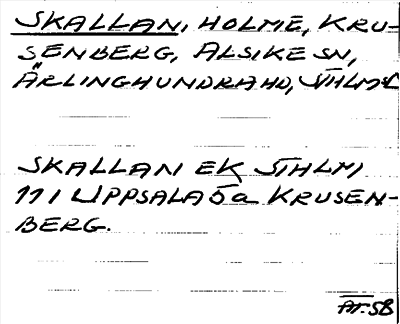 SKALLAN, HOLME, KRU-
SENBERG, ALSIKE SN,
ÄRLINGHUNDRA HD, STHLMSL
SKALLAN EK STHLM
111 UPPSALA 5a KRUSEN-
BERG.
AT. SB